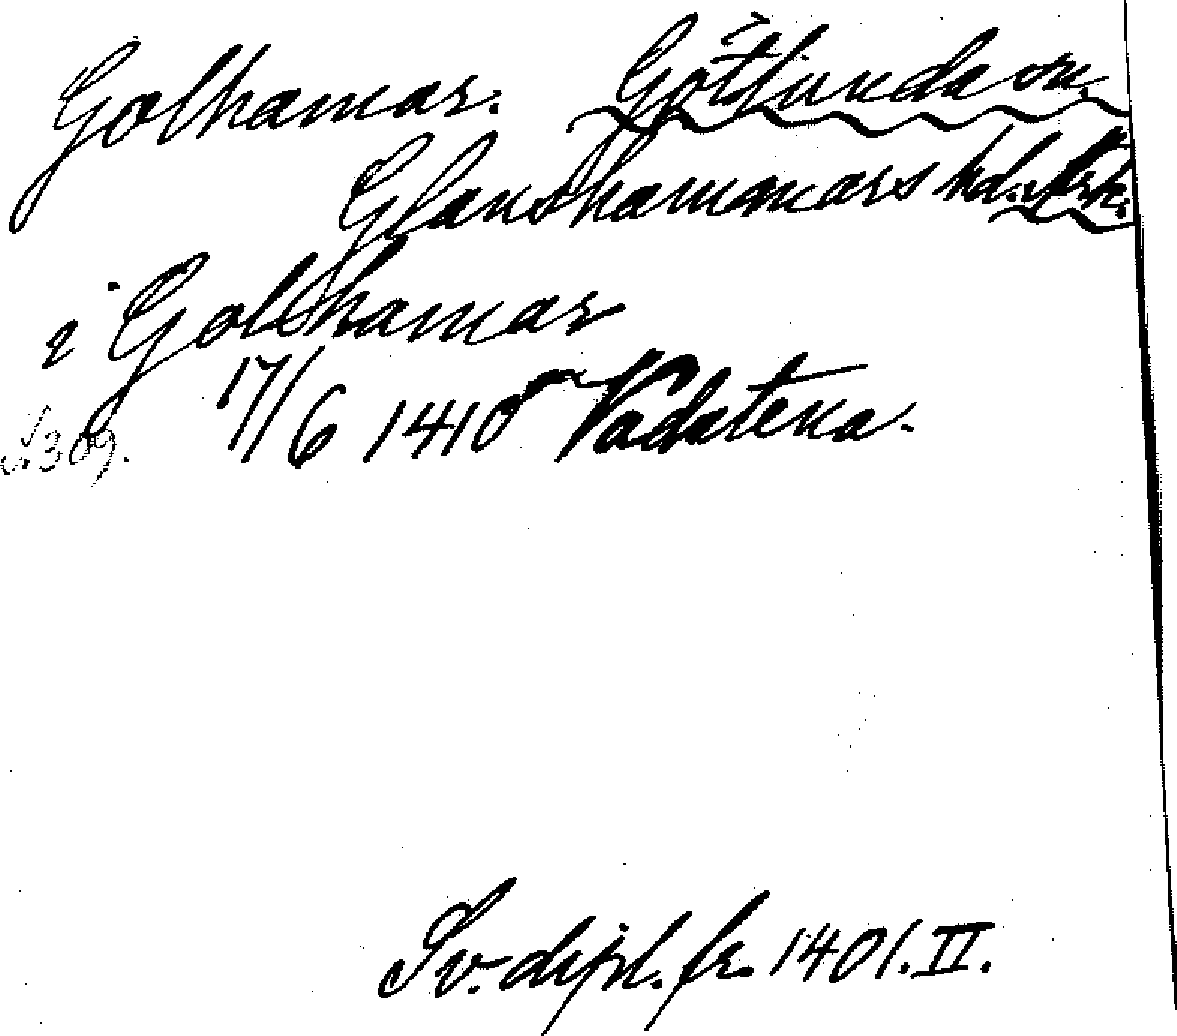 Golhamar. Götlunda sn.
Glanshammars hd.
i Golhamar
17/6 1410 Vadstena.
s. 309.
Sv. dipl. fr. 1401. II.